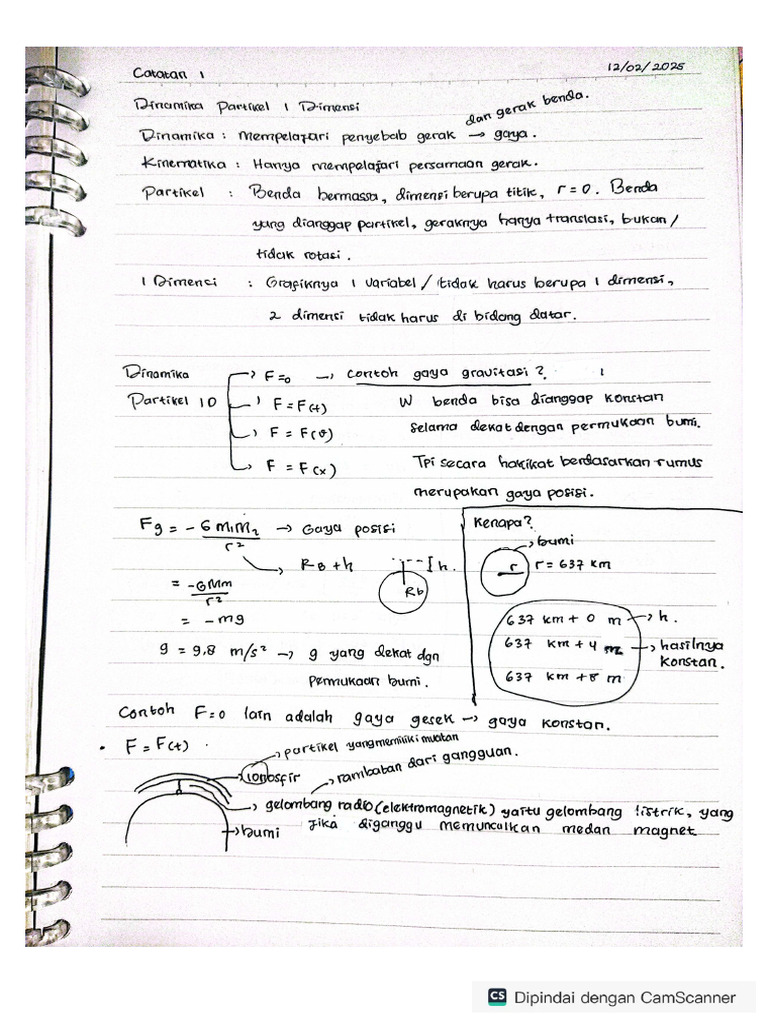 Catatan 1
12/02/2025
Dinamika Partikel 1 Dimensi
dan gerak benda.
Dinamika : Mempelajari penyebab gerak → gaya.
Kinematika : Hanya mempelajari persamaan gerak.
Partikel : Benda bermassa, dimensi berupa titik, r = 0. Benda
yang dianggap partikel, geraknya hanya translasi, bukan /
tidak rotasi.
1 Dimenci : Grafiknya 1 variabel / tidak harus berupa 1 dimensi,
2 dimensi tidak harus di bidang datar.
Dinamika
Partikel 1D
F=0 → Contoh gaya gravitasi ?
F = F(t)
F = F(v)
F = F(x)
W benda bisa dianggap konstan
selama dekat dengan permukaan bumi.
Tpi secara hakikat berdasarkan rumus
merupakan gaya posisi.
Fg = - G M1M2 / r² → Gaya posisi
RB + h
h.
Rb
= -GMm / r²
= - mg
g = 9,8 m/s² → g yang dekat dgn
permukaan bumi.
Kenapa?
bumi
r
r = 637 km
637 km + 0 m → h.
637 km + 4 m → hasilnya
konstan.
637 km + 8 m
Contoh F=0 lain adalah gaya gesek → gaya konstan.
• F = F(t)
partikel yang memiliki muatan
ionosfir
rambatan dari gangguan.
gelombang radio (elektromagnetik) yaitu gelombang listrik, yang
jika diganggu memunculkan medan magnet
bumi
CS Dipindai dengan CamScanner